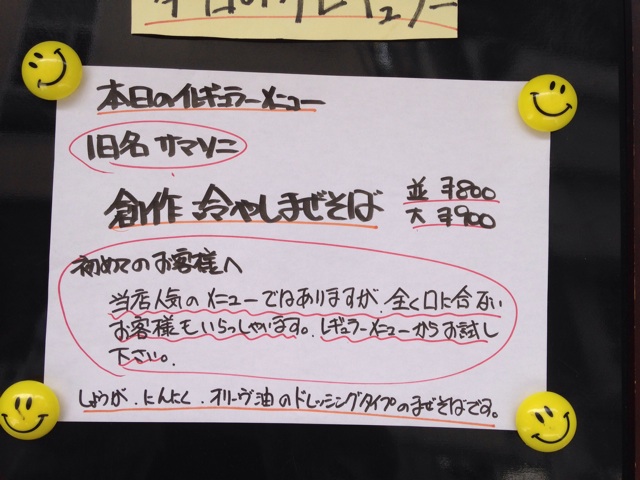 本日のイレギュラーメニュー
旧名 サマソニ
創作 冷やしまぜそば
並 ¥800
大 ¥900
初めてのお客様へ
当店人気のメニューではありますが、全く口に合ない
お客様もいらっしゃいます。レギュラーメニューからお試し
下さい。
しょうが、にんにく、オリーヴ油のドレッシングタイプのまぜそばです。